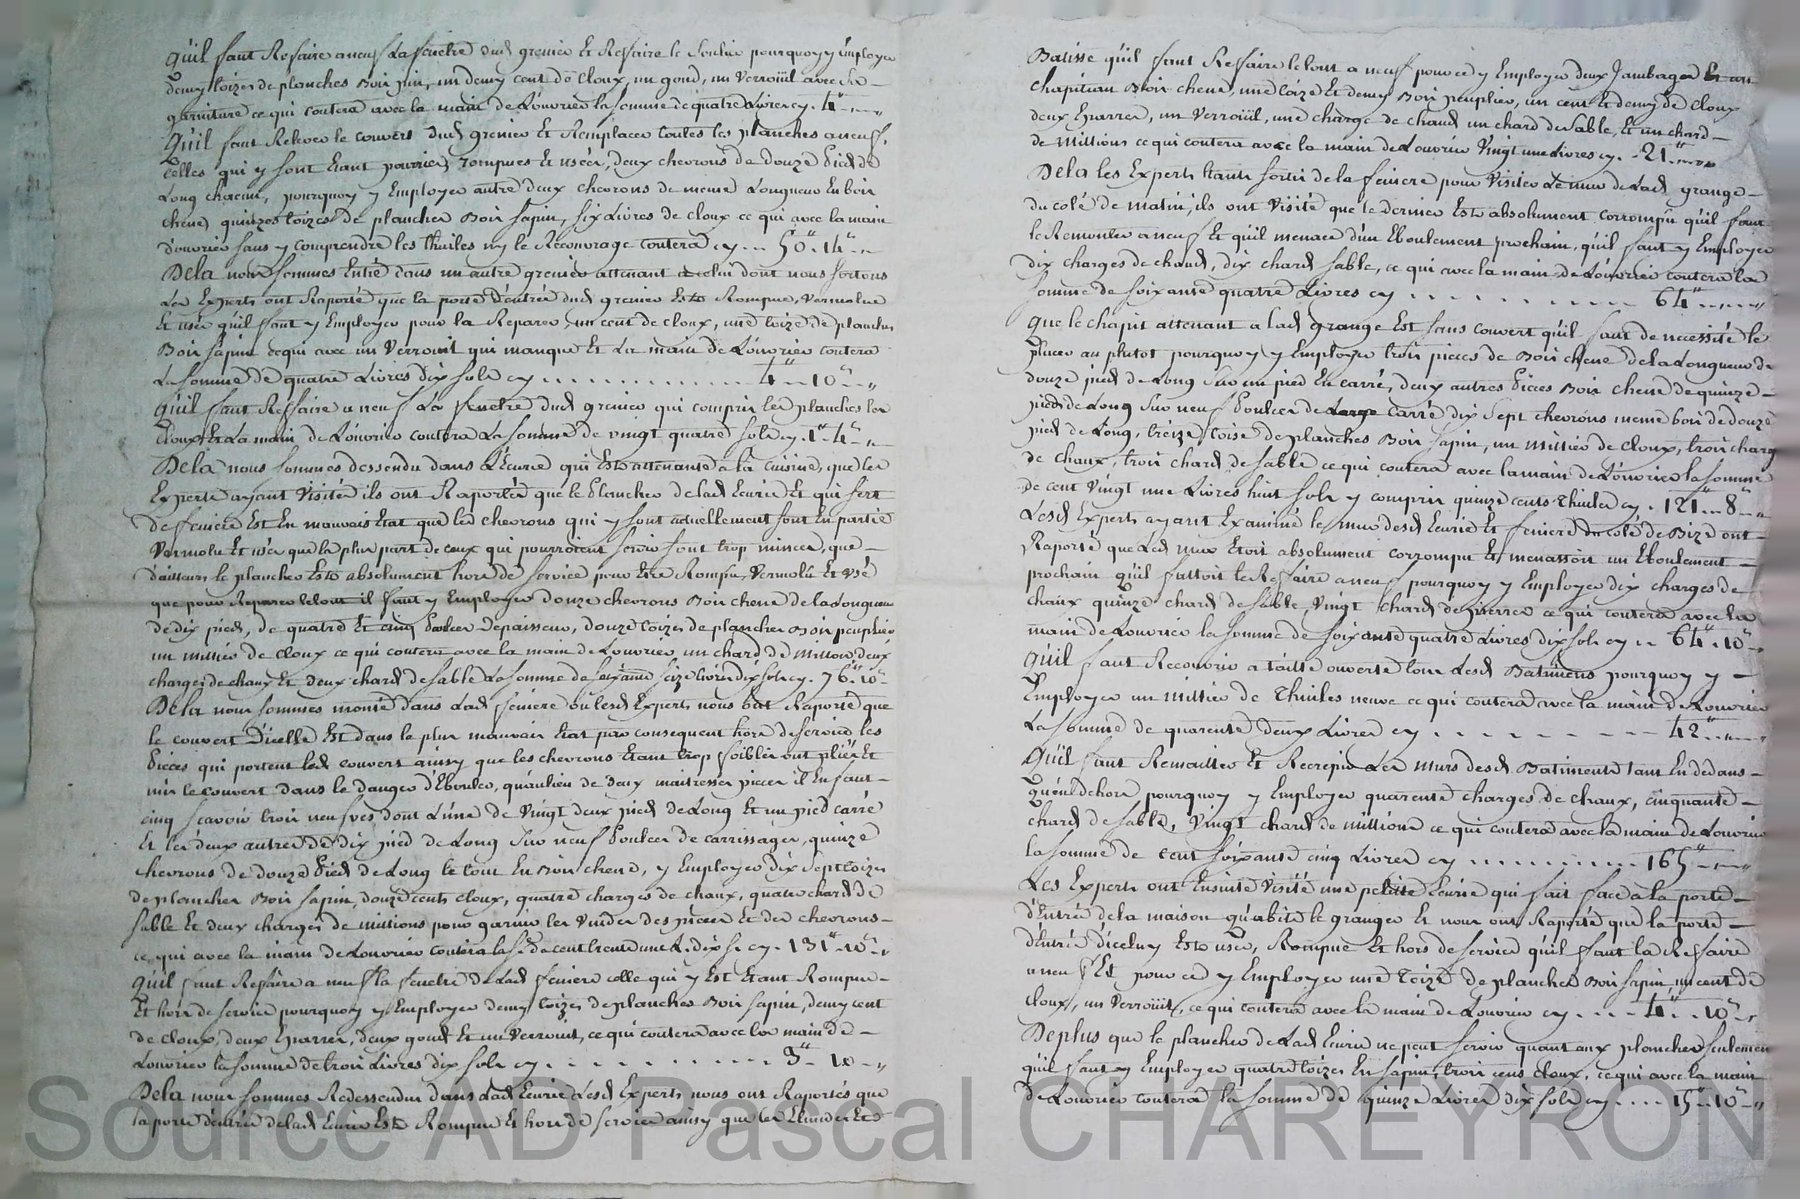 Qu'il faut Refaire a neuf La fenetre dud grenier Et Reffaire le Soulier pourquoy y Employer
demy toizes de planches Bois pin, un demy cent de Cloux, un gond, un Verroüil avec sa
garniture ce qui coutera avec la main de L'ouvrier la somme de quatre Livres cy . 4 " -- "
Qu'il faut Relever le couvert dud grenier Et Remplacer toutes les planches a neuf,
Celles qui y sont Etant pourries, rompues Et usées, deux chevrons de douze Pieds de
Long chacun, pourquoy y Employer autre deux chevrons de meme Longueur En bois
chene, quinze toizes de plancher Bois sapin, six Livres de cloux ce qui avec la main
d'ouvrier sans y comprendre les thuiles ny le Recouvrage coutera cy ... 50 " 14 " "
De la nous sommes Entré dans un autre grenier attenant a celui dont nous sortons
Les Experts ont Raporté que la porte d'entrée dud grenier Est Rompue, Vermolue
Et usée qu'il faut y Employer pour la Reparer, un cent de cloux, une toize de planches
Bois sapin ce qui avec un Verrouil qui manque Et La main de L'ouvrier coutera
La somme de quatre Livres dix sols cy ............ 4 " 10 " "
Qu'il faut Reffaire a neuf La fenetre dud grenier qui compris les planches les
Cloux Et La main de L'ouvrier coutera La somme de vingt quatre sols cy . 1 " 4 " "
De la nous sommes dessendu dans L'Ecurie qui Est attenante a la cuisine, que les
Experts ayant Visitée ils ont Raportée que le Plancher de lad Ecurie Et qui sert
de feniere Est En mauvais Etat que les chevrons qui y sont actuellement sont En partie
Vermolu Et usée que la plus part de ceux qui pourroient servir sont trop minces, que
d'ailleurs le plancher Est absolument hors de service pour Etre Rompu, Vermolu Et usé
que pour Reparer le tout il faut y Employer douze chevrons Bois chene de la Longueur
de dix pieds, de quatre Et cinq Pouces d'epaisseur, douze toizes de plancher Bois peuplier
un millier de cloux ce qui coutera avec la main de L'ouvrier un chard de Millons deux
charges de chaux Et deux chard de sable La somme de soixante seize livres dix sols cy . 76 " 10 "
De la nous sommes monté dans Lad feniere ou lesd Experts nous ont Raporté que
le couvert D'icelle Est dans le plus mauvais Etat par consequent hors de service les
Pieces qui portent led couvert ainsy que les chevrons Etant trop foibles ont pliées Et
mis le couvert dans le danger d'Ebouler, qu'au lieu de deux maitresses pieces il En faut
cinq sçavoir trois neufves dont L'une de Vingt deux pieds de Long Et un pied carré
Et les deux autres de dix pied de Long sur neuf Pouces de carrissage, quinze
chevrons de douze Pieds de Long le tout En Bois chene, y Employer dix sept toizes
de plancher Bois sapin, douze cents cloux, quatre charges de chaux, quatre chard de
sable Et deux charges de millions pour garnir les Vuides des pieces Et des chevrons
ce qui avec la main de L'ouvrier coutera la se de cent trente une L. dix s. cy . 131 " 10 " "
Qu'il faut Refaire a neuf la fenetre de Lad feniere celle qui y Est Etant Rompue
Et hors de service pourquoy y Employer demy toizes de planches Bois sapin, demy cent
de cloux, deux Eparres, deux gonds Et un Verrouil, ce qui coutera avec la main de
L'ouvrier la somme de trois Livres dix sols cy ............ 3 " 10 " "
De la nous sommes Redessendu dans Lad Ecurie Lesd Experts nous ont Raportés que
la porte d'entrée de lad Ecurie Est Rompue Et hors de service ainsy que les
Batisse qu'il faut Reffaire le tout a neuf pour ce y Employer deux Jambages Et un
chapiteau Bois chene, une toize Et demy Bois peuplier, un cent Et demy de cloux
deux Eparres, un Verroüil, une charge de chaux un chard de sable, Et un chard
de millions ce qui coutera avec la main de L'ouvrier Vingt une Livres cy . 21 " -- "
De la les Experts Etants sortis de la feniere pour Visiter Le mur de Lad grange
du coté de matin, ils ont Visité que le dernier Est absolument corrompu qu'il faut
le Remonter a neuf Et qu'il menace d'un Eboulement prochain, qu'il faut y Employer
dix charges de chaux, dix chard sable, ce qui avec la main de L'ouvrier coutera la
somme de soixante quatre Livres cy .......... 64 " -- "
Que le chapit attenant a lad grange Est sans couvert qu'il faut de necessité le
placer au plutot pourquoy y Employer trois pieces de Bois chene de la Longueur de
douze pieds de Long sur un pied En carré, deux autres Pieces Bois chene de quinze
pieds de Long sur neuf Pouces de carré dix sept chevrons meme bois de douze
pieds de Long, treize toise de planches Bois sapin, un millier de cloux, trois charges
de chaux, trois chard de sable ce qui coutera avec la main de L'ouvrier la somme
de cent vingt une Livres huit sols y compris quinze cents thuiles cy . 121 " 8 " "
Lesd Experts ayant Examiné le mur desd Ecurie Et feniere du coté de Bize ont
Raporté que Led mur Etoit absolument corrompu Et menassoit un Eboulement
prochain qu'il falloit le Reffaire a neuf pourquoy y Employer dix charges de
chaux quinze chard de sable, Vingt chard de pierres ce qui coutera avec la
main de L'ouvrier la somme de soixante quatre Livres dix sols cy .. 64 " 10 " "
Qu'il faut Recouvrir a taille ouverte tous Lesd Batiments pourquoy y
Employer un millier de Thuiles neuve ce qui coutera avec la main de L'ouvrier
La somme de quarente deux Livres cy ......... 42 " -- "
Qu'il faut Remailler Et Recrepir Les murs desd Batiments tant En dedans
qu'en dehors pourquoy y Employer quarente charges de chaux, cinquante
chard de sable, Vingt chard de millions ce qui coutera avec la main de L'ouvrier
la somme de cent soixante cinq Livres cy ......... 165 " -- "
Les Experts ont Ensuite Visité une petite Ecurie qui fait face a la porte
d'Entrée de la maison qu'abite le granger Et nous ont Raporté que la porte
d'Entrée d'icelle Est usée, Rompue Et hors de service qu'il faut la Reffaire
a neuf Et pour ce y Employer une Toize de planches Bois sapin, un cent de
cloux, un Verroüil, ce qui coutera avec la main de L'ouvrier cy .... 4 " 10 " "
De plus que le plancher de Lad Ecurie ne peut servir quant aux planches seulement
qu'il faut y Employer quatre toizes En sapin, trois cens cloux, ce qui avec la main
de L'ouvrier coutera la somme de quinze Livres dix sols cy .... 15 " 10 " "
Source AD Pascal CHAREYRON